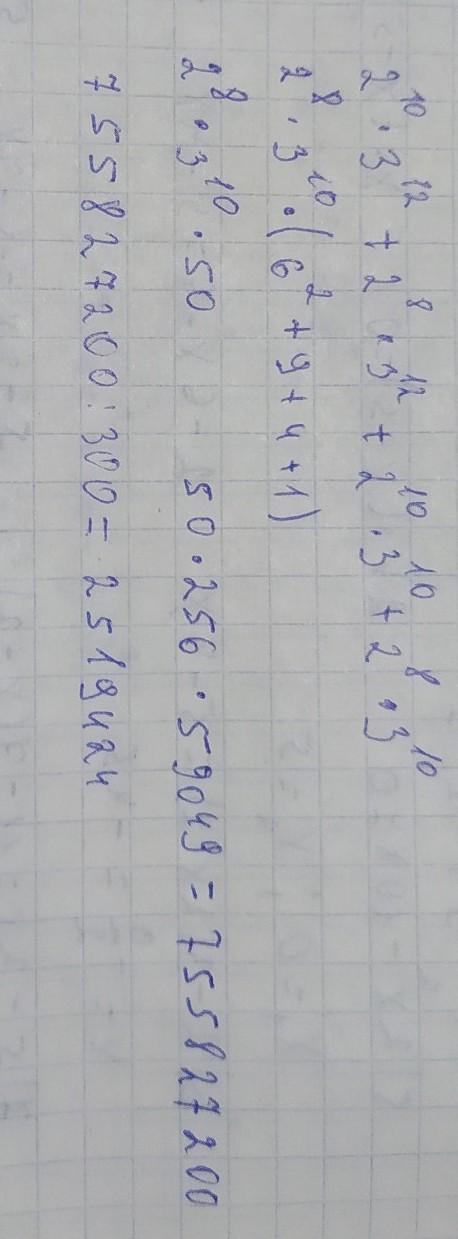 2¹⁰ · 3¹² + 2⁸ · 3¹² + 2¹⁰ · 3¹⁰ + 2⁸ · 3¹⁰
2⁸ · 3¹⁰ · (6² + 9 + 4 + 1)
2⁸ · 3¹⁰ · 50 50 · 256 · 59049 = 755827200
755827200 : 300 = 2519424